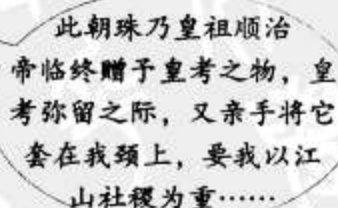 此朝珠乃皇祖顺治
帝临终赠予皇考之物，皇
考弥留之际，又亲手将它
套在我颈上，要我以江
山社稷为重……